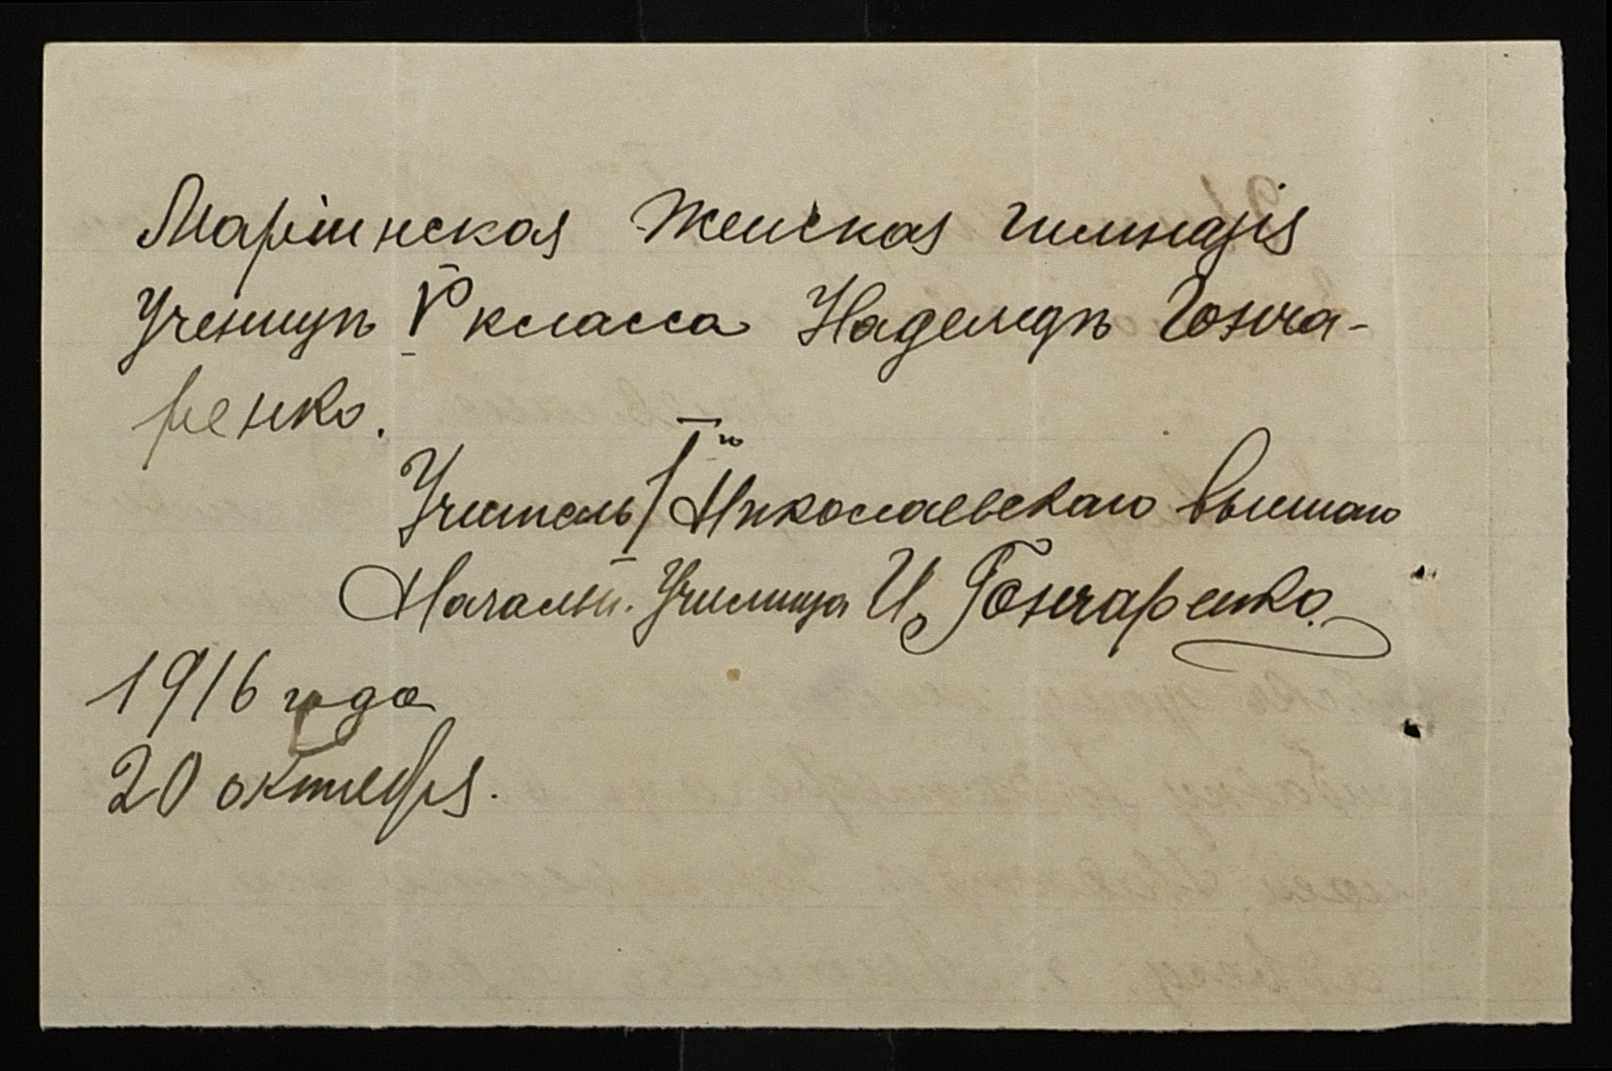 Маріинская Женская гимназія
Ученицѣ V класса Надеждѣ Гонча-
ренко.
Учитель I го Николаевскаго высшаго
Начальн. Училища И. Гончаренко.
1916 года
20 октября.